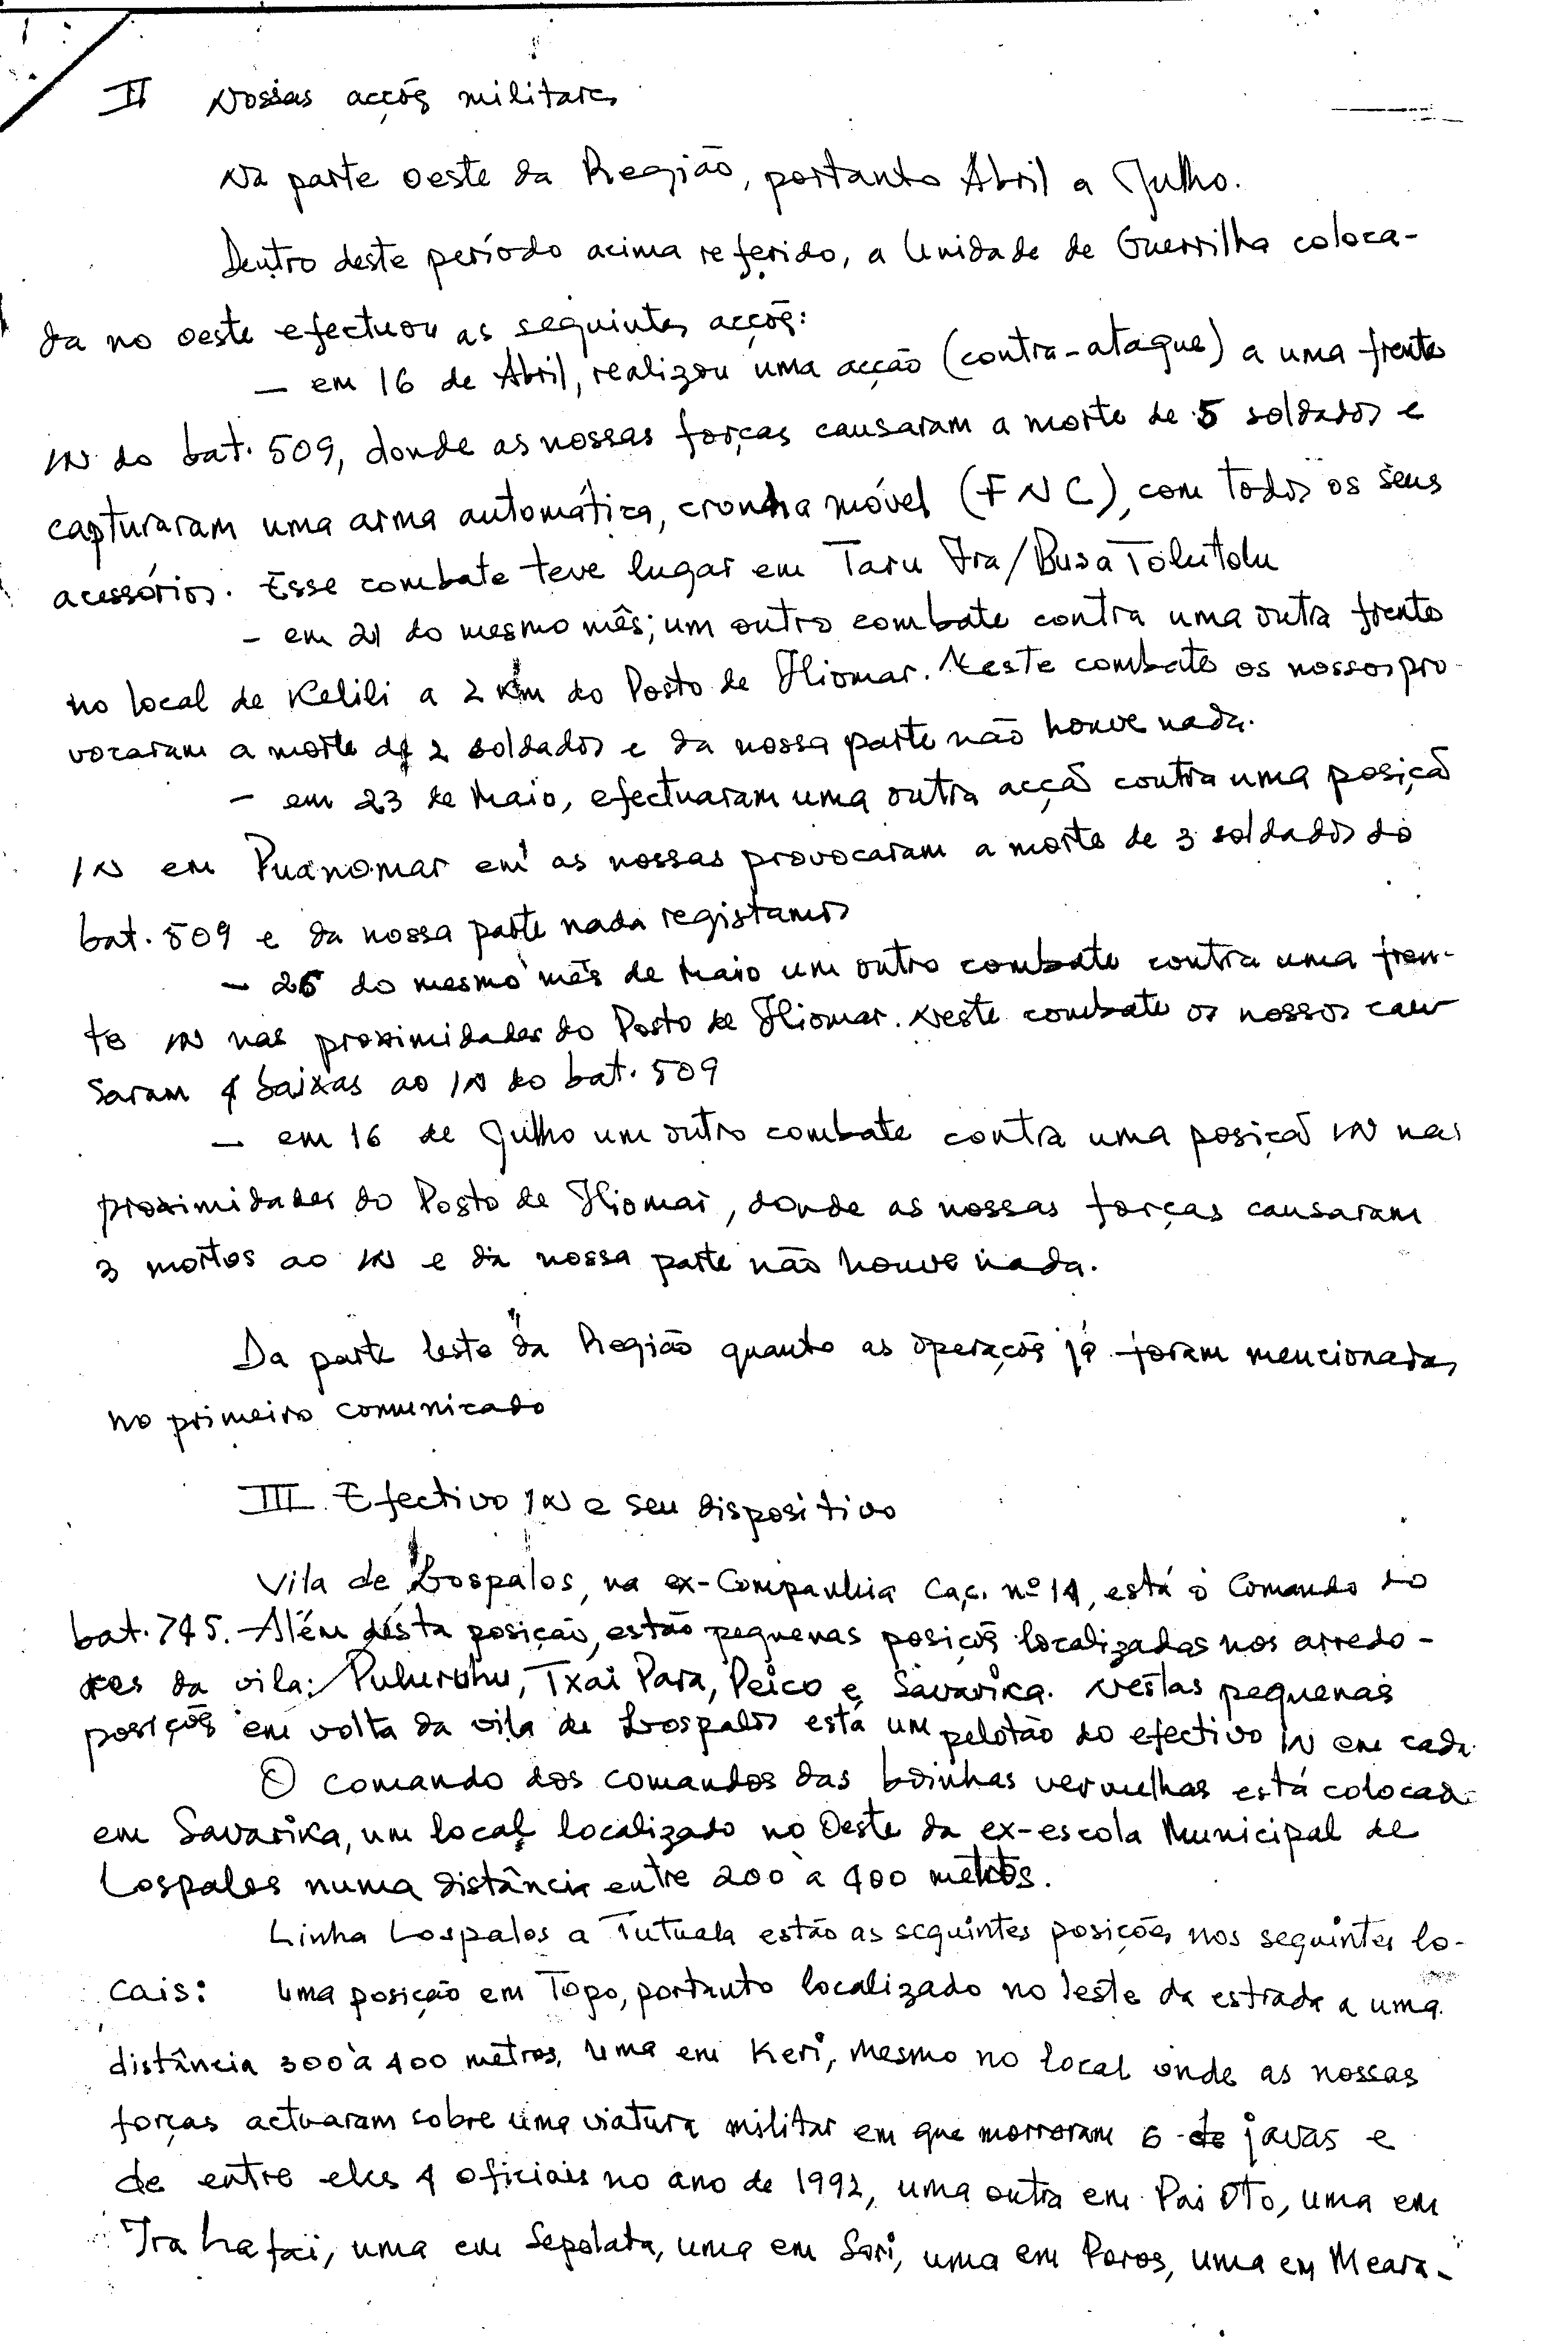 II Nossas acções militares
Na parte oeste da Região, portanto Abril a Julho.
Dentro deste período acima referido, a Unidade de Guerrilha coloca-
da no oeste efectuou as seguintes acções:
— em 16 de Abril, realizou uma acção (contra-ataque) a uma frente
IN do bat. 509, donde as nossas forças causaram a morte de 5 soldados e
capturaram uma arma automática, cronha móvel (FNC), com todos os seus
acessórios. Esse combate teve lugar em Taru Ira/Busa Tolutolu
- em 21 do mesmo mês; um outro combate contra uma outra frente
no local de Kelili a 2 Km do Posto de Iliomar. Neste combate os nossos pro-
vocaram a morte de 2 soldados e da nossa parte não houve nada.
- em 23 de Maio, efectuaram uma outra acção contra uma posição
IN em Puanomar em as nossas provocaram a morte de 3 soldados do
bat. 509 e da nossa parte nada registamos
- 26 do mesmo mês de Maio um outro combate contra uma fren-
te IN nas proximidades do Posto de Iliomar. Neste combate os nossos cau-
saram 4 baixas ao IN do bat. 509
— em 16 de Julho um outro combate contra uma posição IN nas
proximidades do Posto de Iliomar, donde as nossas forças causaram
3 mortos ao IN e da nossa parte não houve nada.
Da parte leste da Região quanto as operações já foram mencionadas
no primeiro comunicado
III. Efectivo IN e seu dispositivo
Vila de Lospalos, na ex-Companhia Caç. nº 14, está o Comando do
bat. 745. Além désta posição, estão pequenas posições localizadas nos arredo-
res da vila: Puhuruhu, Txai Para, Peico e Savarika. Nestas pequenas
posições em volta da vila de Lospalos está um pelotão do efectivo IN em cada.
O comando dos comandos das boinhas vermelhas está colocad
em Savarika, um local localizado no Oeste da ex-escola Municipal de
Lospalos numa distância entre 200 à 400 metros.
Linha Lospalos a Tutuala estão as seguintes posições nos seguintes lo-
cais: Uma posição em Topo, portanto localizado no leste da estrada a uma
distância 300 à 400 metros, uma em Keri, mesmo no local onde as nossas
forças actuaram sobre uma viatura militar em que morreram 6 de javas e
de entre eles 4 oficiais no ano de 1992, uma outra em Pai Oto, uma em
Ira Lafai, uma em Sepelata, uma em Sori, uma em Poros, uma em Meara-